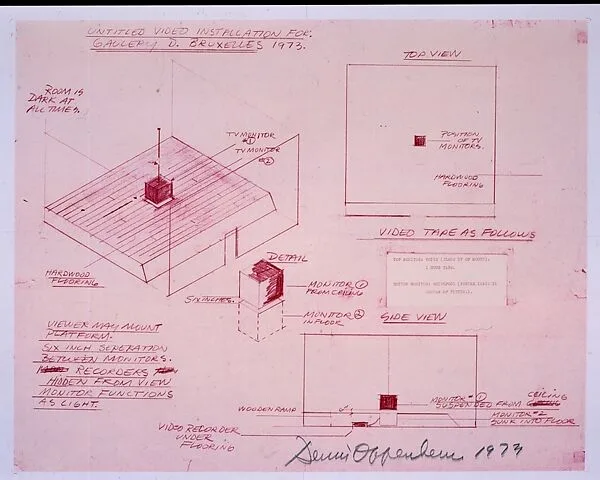 UNTITLED VIDEO INSTALLATION FOR.
GALLERY D. BRUXELLES 1973.
TOP VIEW
ROOM IS
DARK AT
ALL TIMES.
TV MONITOR
#1
TV MONITOR
#2
POSITION
OF TV
MONITORS.
HARDWOOD
FLOORING
VIDEO TAPE AS FOLLOWS
HARDWOOD
FLOORING
DETAIL
MONITOR 1
FROM CEILING
SIX INCHES.
MONITOR 2
IN FLOOR
TOP MONITOR:
1 HOUR TAPE.
BOTTOM MONITOR:
SIDE VIEW
VIEWER MAY MOUNT
PLATFORM.
SIX INCH SEPERATION
BETWEEN MONITORS.
RECORDERS
HIDDEN FROM VIEW
MONITOR FUNCTIONS
AS LIGHT.
WOODEN RAMP
MONITOR #1 CEILING
SUSPENDED FROM
MONITOR #2
SUNK INTO FLOOR
VIDEO RECORDER
UNDER
FLOORING
Dennis Oppenheim 1973